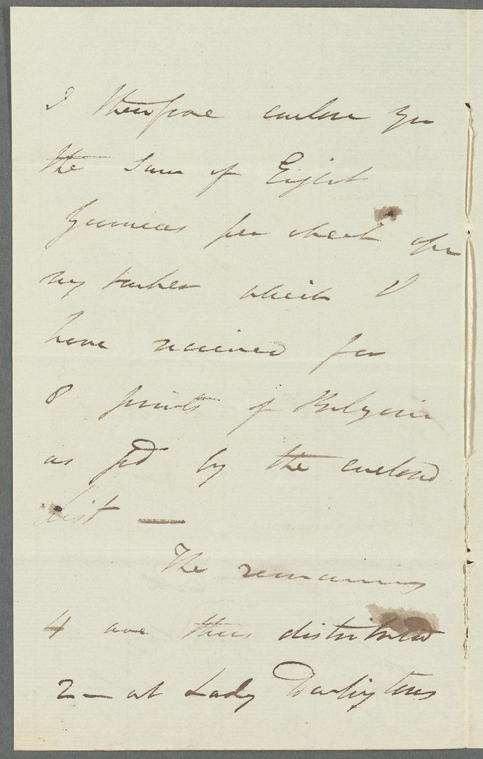 I therefore enclose you
the Sum of Eight
Guineas per check upon
my banker which I
have received for
8 prints of Belzoni
as pd by the enclosed
List —
The remaining
4 are thus distributed
2 – at Lady Darlingtons